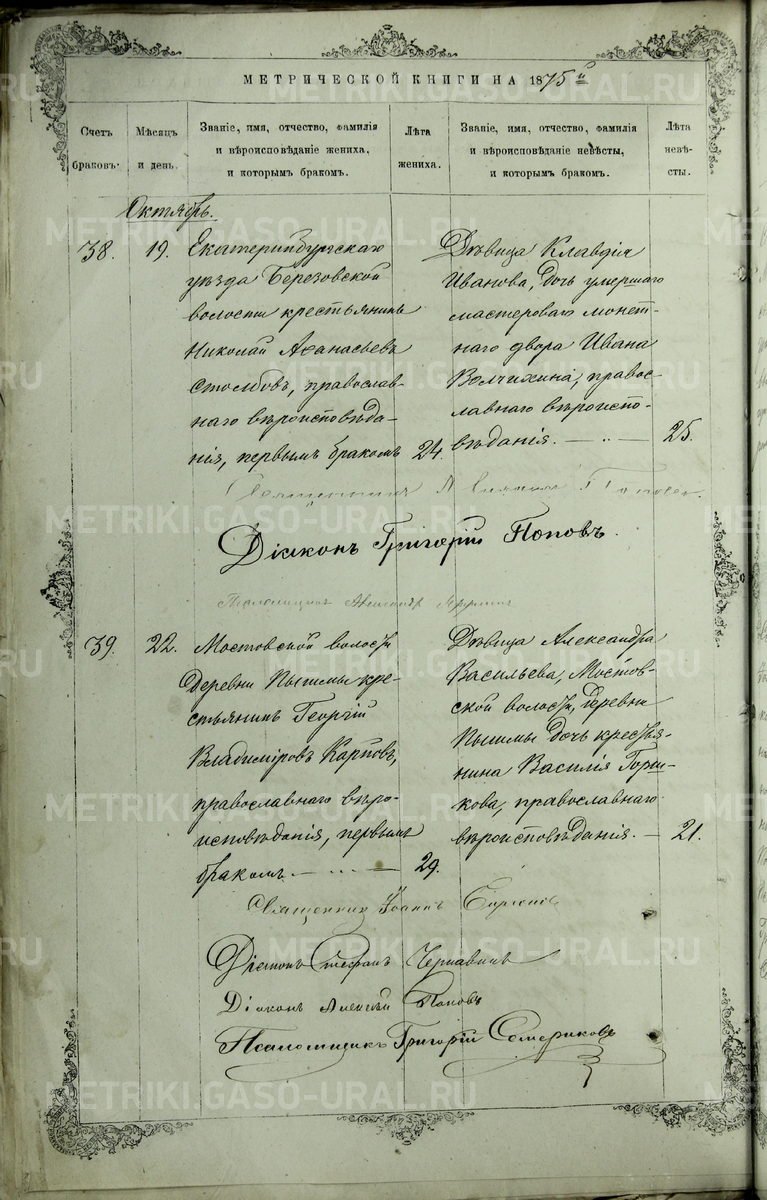 МЕТРИЧЕСКОЙ КНИГИ НА 1875 й
Счетъ
браковъ.
Мѣсяцъ
и день.
Званіе, имя, отчество, фамилія
и вѣроисповѣданіе жениха,
и которымъ бракомъ.
Лѣта
жениха.
Званіе, имя, отчество, фамилія
и вѣроисповѣданіе невѣсты,
и которымъ бракомъ.
Лѣта
невѣ-
сты.
Октябрь.
38.
19.
Екатеринбургскаго
уѣзда Березовской
волости крестьянинъ
Николай Аѳанасьевъ
Столбовъ, православ-
наго вѣроисповѣда-
нія, первымъ бракомъ
24.
Дѣвица Клавдія
Иванова, дочь умершаго
мастероваго монет-
наго двора Ивана
Волчихина, правос-
лавнаго вѣроиспо-
вѣданія.
25.
Священникъ Поповъ.
Діаконъ Григорій Поповъ.
Псаломщикъ
39.
22.
Мостовской волости
деревни Пышмы кре-
стьянинъ Георгій
Владиміровъ Карповъ,
православнаго вѣро-
исповѣданія, первымъ
бракомъ.
29.
Дѣвица Александра
Васильева, Мостов-
ской волости, деревни
Пышмы дочь крестья-
нина Василія Горш-
кова, православнаго
вѣроисповѣданія.
21.
Священникъ Іоаннъ
Діаконъ Стефанъ Чернавинъ
Діаконъ Алексѣй Поповъ
Псаломщикъ Григорій Семериковъ
METRIKI.GASO-URAL.RU